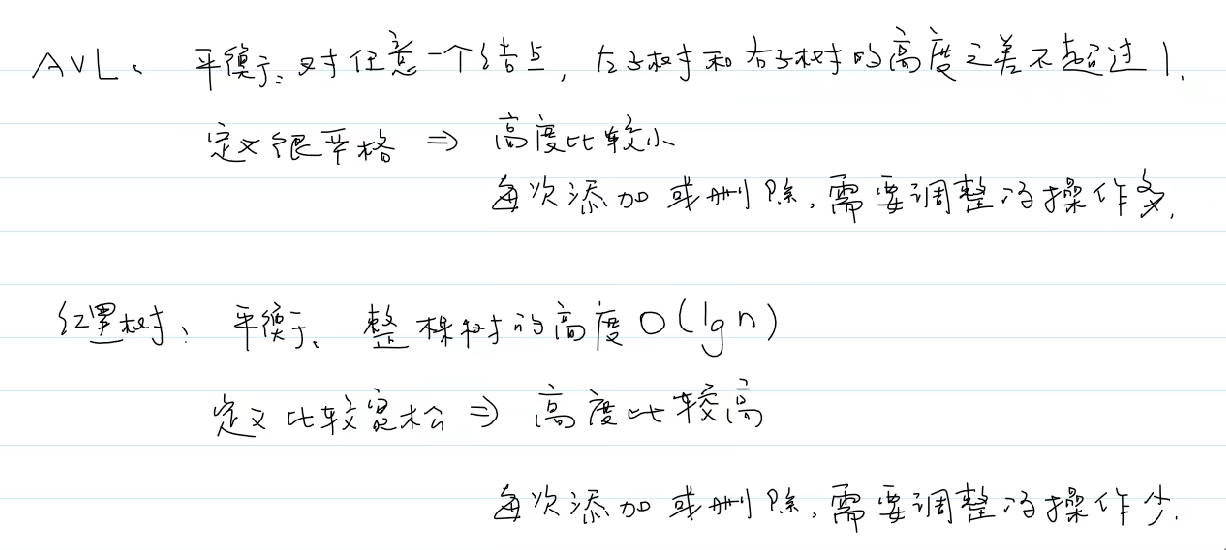 AVL: 平衡: 对任意一个结点, 左子树和右子树的高度之差不超过1.
定义很严格 ⇒ 高度比较小
每次添加或删除, 需要调整的操作多.
红黑树: 平衡: 整棵树的高度O(lgn)
定义比较宽松 ⇒ 高度比较高
每次添加或删除, 需要调整的操作少.